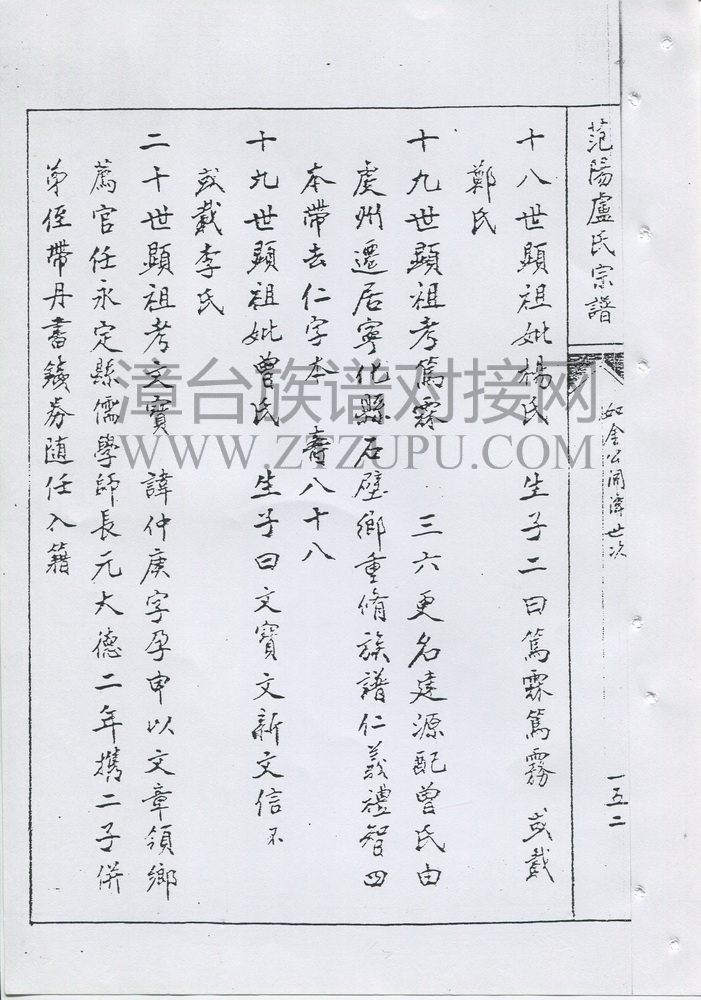 范陽盧氏宗譜
如金公開漳世次
一五二
十八世顯祖妣楊氏 生子二曰篤霖篤霧 或載
鄭氏
十九世顯祖考篤霖 三六更名建源配曾氏由
虔州遷居寧化縣石壁鄉重脩族譜仁義禮智四
本帶去仁字本 壽八十八
十九世顯祖妣曾氏 生子曰文寶文新文信不
或載李氏
二十世顯祖考文寶 諱仲庚字孕申以文章領鄉
薦官任永定縣儒學師長元大德二年攜二子併
弟侄帶丹書鐵券随任入籍
漳台族谱对接网
WWW.ZTZUPU.COM